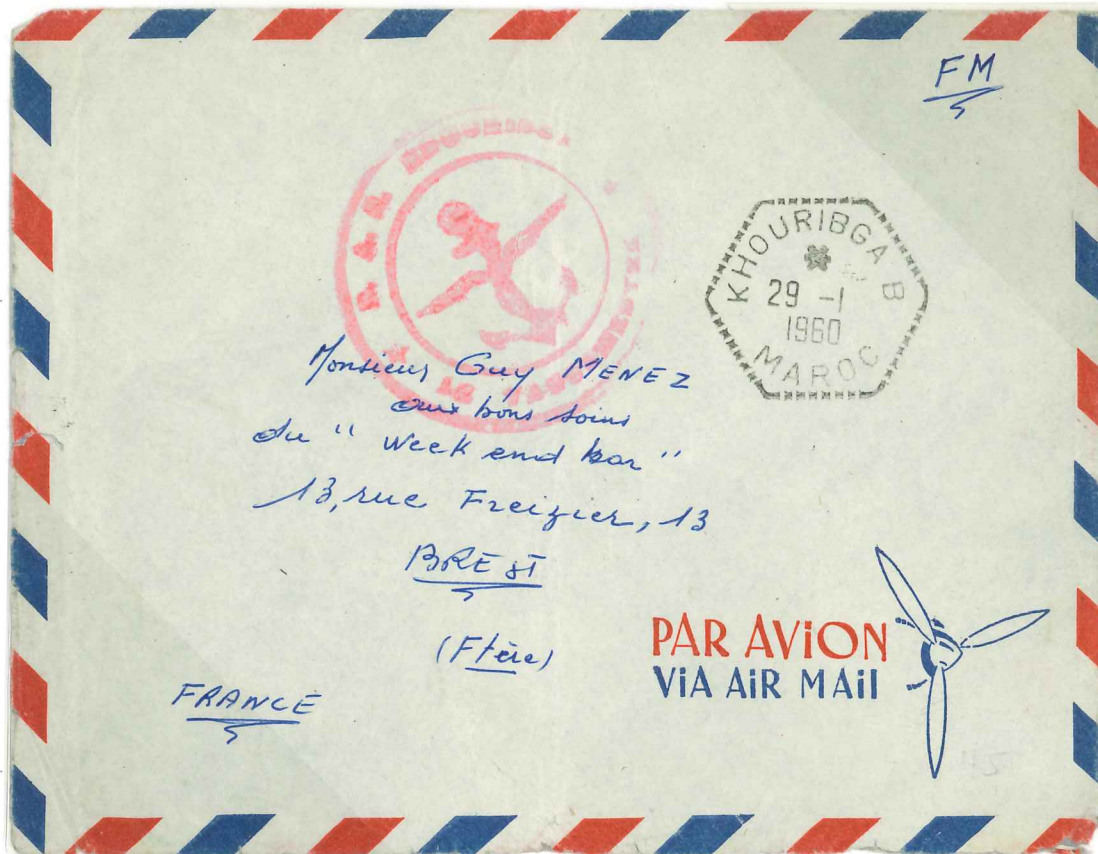 FM
KHOURIBGA B
29 -1
1960
MAROC
Monsieur Guy MENEZ
aux bons soins
du " Week end bar "
13, rue Freizier, 13
BREST
(Ftère)
FRANCE
PAR AViON
ViA AiR MAil